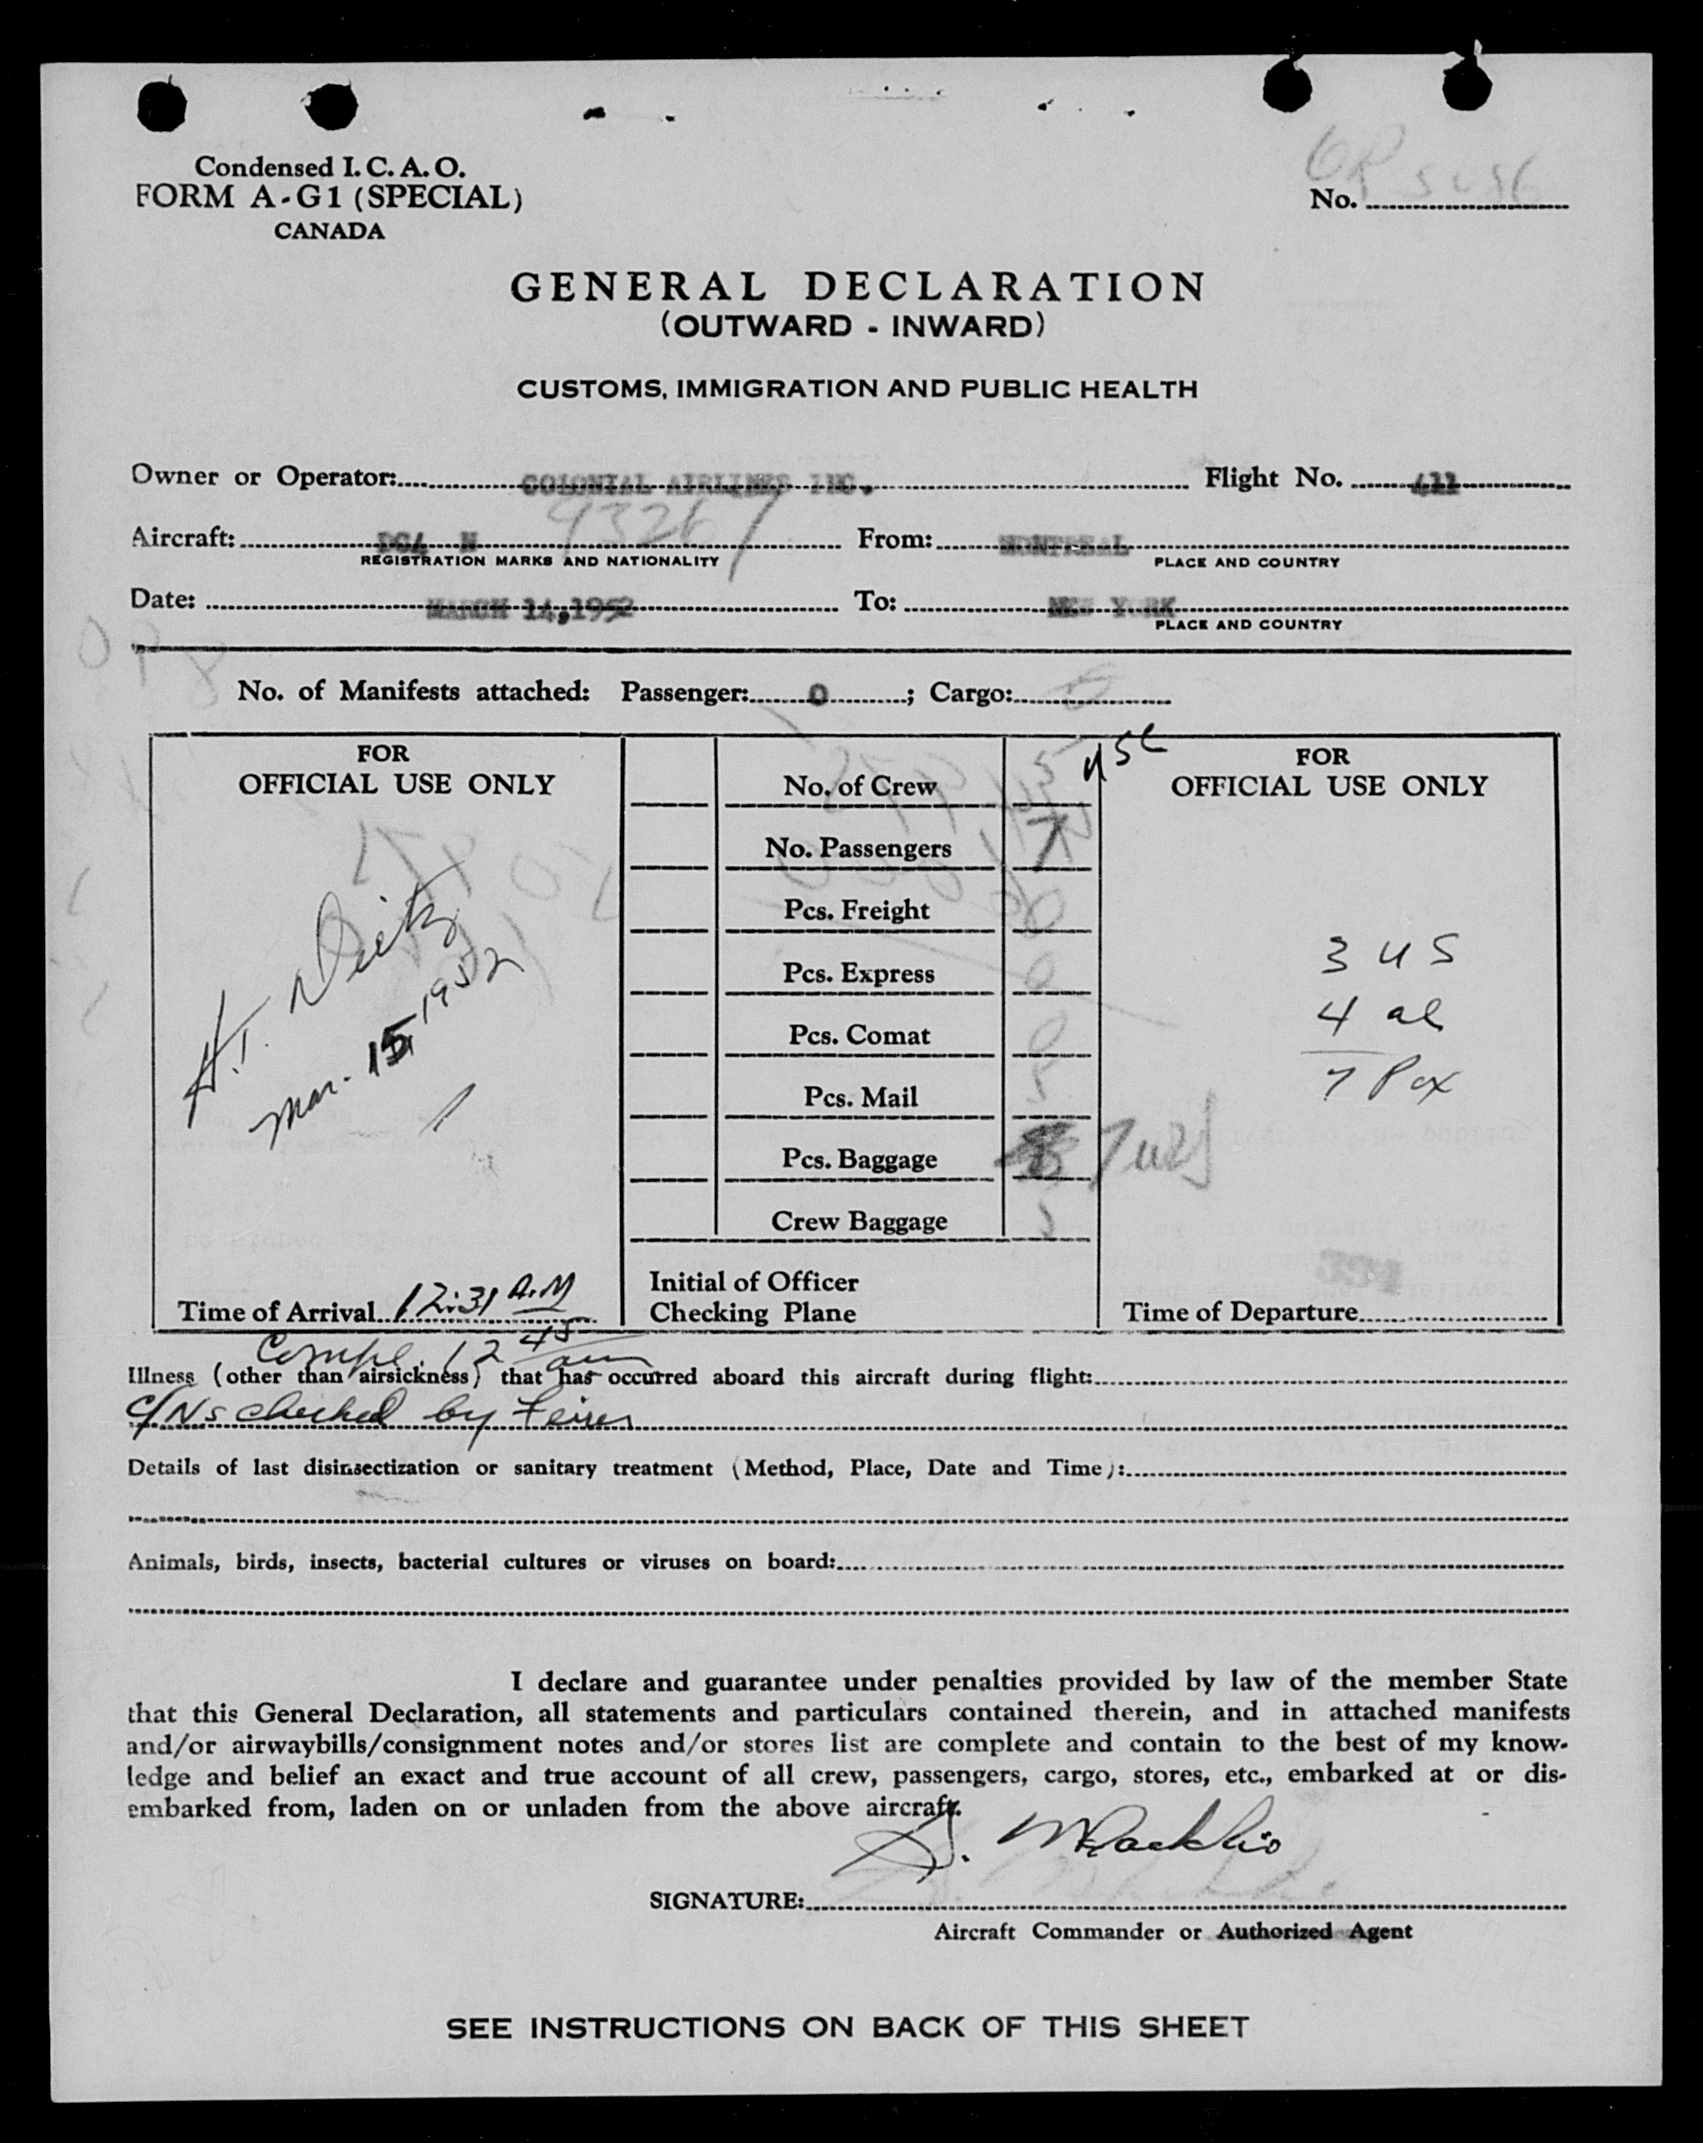 Condensed I. C. A. O.
FORM A-G1 (SPECIAL)
CANADA
No.
GENERAL DECLARATION
(OUTWARD - INWARD)
CUSTOMS, IMMIGRATION AND PUBLIC HEALTH
Owner or Operator: COLONIAL AIRLINES INC. Flight No. 411
Aircraft: DC4 N 93267 From: MONTREAL
REGISTRATION MARKS AND NATIONALITY PLACE AND COUNTRY
Date: MARCH 14,1952 To: NEW YORK
PLACE AND COUNTRY
No. of Manifests attached: Passenger: 0; Cargo:
FOR
OFFICIAL USE ONLY
H. Dietz
Mar. 15, 1952
Time of Arrival 12:31 A.M
No. of Crew 5 USC
No. Passengers 7
Pcs. Freight
Pcs. Express 0
Pcs. Comat 0
Pcs. Mail 5
Pcs. Baggage
Crew Baggage 5
Initial of Officer
Checking Plane
FOR
OFFICIAL USE ONLY
3 US
4 al
7 Pax
Time of Departure
Compl. 12 45 am
Illness (other than airsickness) that has occurred aboard this aircraft during flight:
c/Ns checked by
Details of last disinsectization or sanitary treatment (Method, Place, Date and Time):
Animals, birds, insects, bacterial cultures or viruses on board:
I declare and guarantee under penalties provided by law of the member State
that this General Declaration, all statements and particulars contained therein, and in attached manifests
and/or airwaybills/consignment notes and/or stores list are complete and contain to the best of my know-
ledge and belief an exact and true account of all crew, passengers, cargo, stores, etc., embarked at or dis-
embarked from, laden on or unladen from the above aircraft.
SIGNATURE:
Aircraft Commander or Authorized Agent
SEE INSTRUCTIONS ON BACK OF THIS SHEET